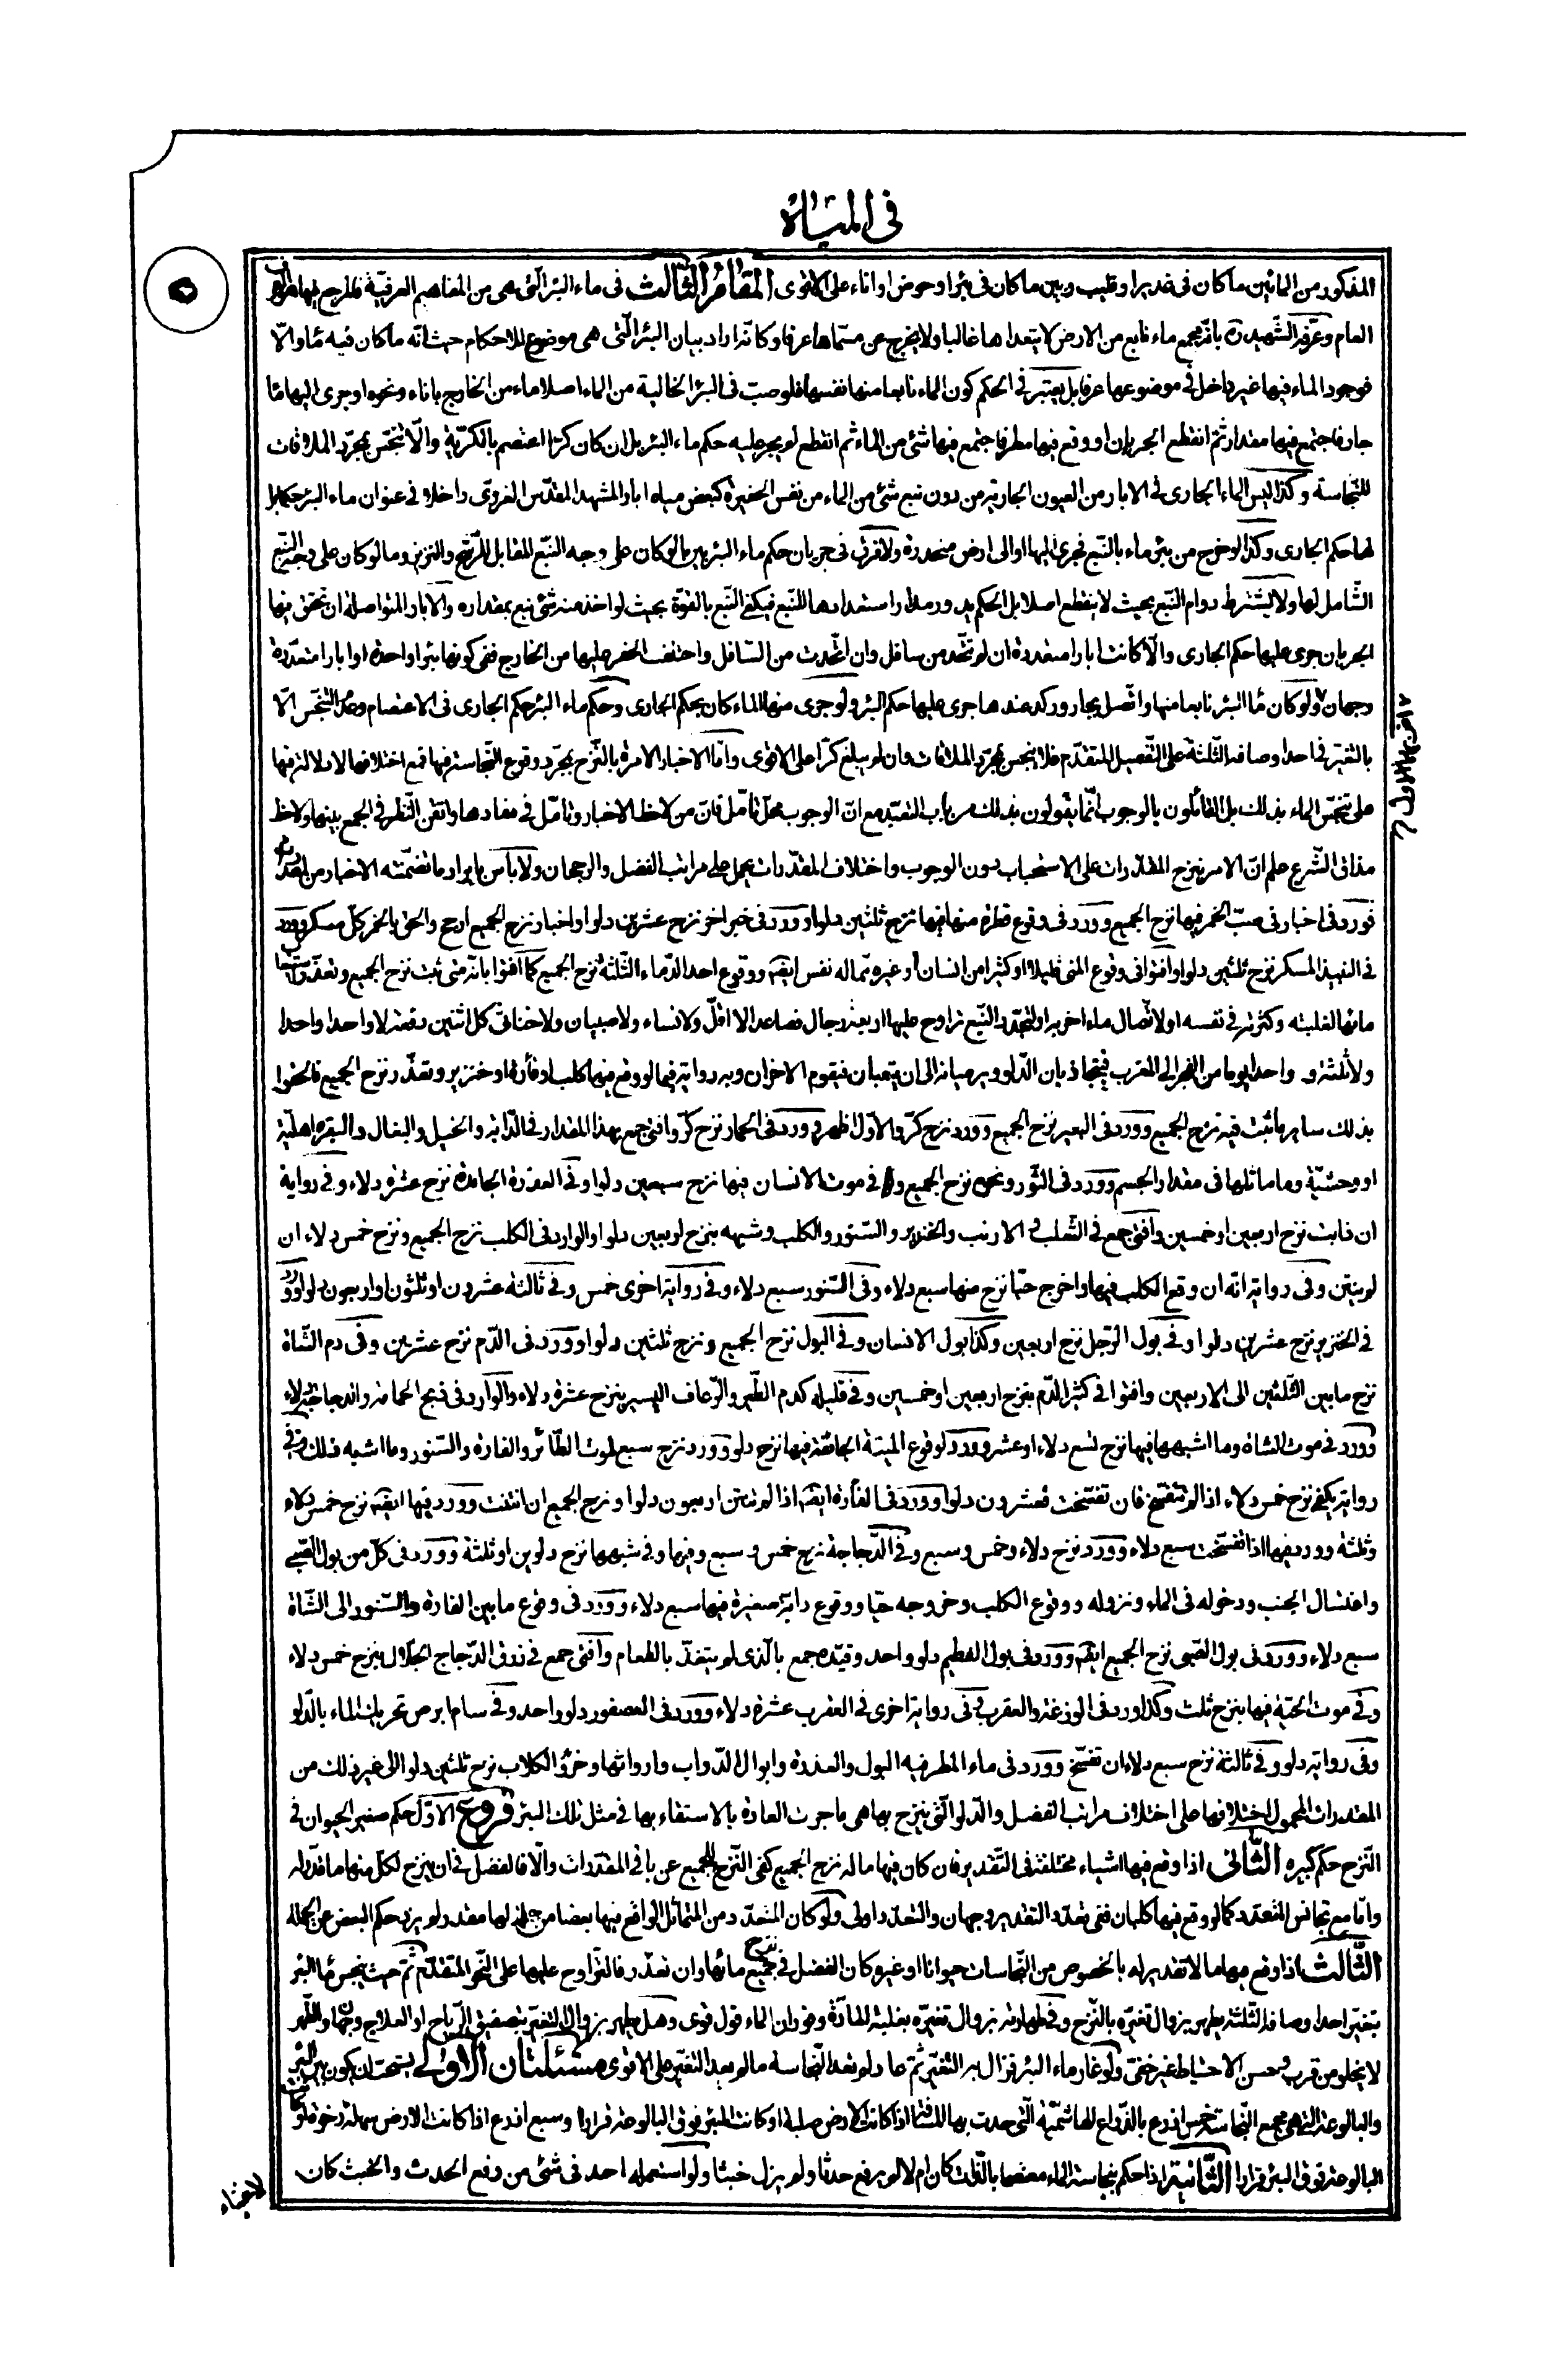 فى المياه
المذكور من المائين ما كان فى غدير او قليب وبين ما كان فى بئر او حوض او اناء على الاقوى المقام الثالث فى ماء البئر الّتى هى من المفاهيم العرفيّة فالمرجع فيها العرف
العام وعرّفه الشّهيد ره بانّه مجمع ماء نابع من الارض لا يتعداها غالبا ولا يخرج عن مسمّاها عرفا وكانّه اراد بيان البئر الّتى هى موضوع للاحكام حيث انّه ما كان فيه ماء والّا
فوجود الماء فيها غير داخل فى موضوعها عرفا بل يعتبر فى الحكم كون الماء نابعا منها نفسها فلو صبّ فى البئر الخالية من الماء اصلا ماء من الخارج باناء ونحوه او جرى اليها ماء
جار فاجتمع فيها مقدار ثمّ انقطع الجريان او وقع فيها مطر فاجتمع فيها شئ من الماء ثم انقطع لم يجر عليه حكم ماء البئر بل ان كان كرّا اعتصم بالكرّية والّا تنجّس بمجرّد الملاقات
للنّجاسة وكذا ليس الماء الجارى فى الابار من العيون الجارية من دون نبع شئ من الماء من نفس الحفيرة كبعض مياه ابار المشهد المقدّس الغروىّ داخلا فى عنوان ماء البئر حكما بل
لها حكم الجارى وكذا لو خرج من بئر ماء بالنّبع فجرى اليها او الى ارض منحدرة ولا فرق فى جريان حكم ماء البئر بين ما لو كان على وجه النّبع المقابل للرّشح والنزيز وما لو كان على وجه النّبع
الشّامل لها ولا يشترط دوام النّبع بحيث لا ينقطع اصلا بل الحكم يدور مدار استعدادها للنّبع فيكفى النّبع بالقوّة بحيث لو اخذ منه شئ نبع بمقداره والابار المتواصلة ان تحقق فيها
الجريان جرى عليها حكم الجارى والّا كانت ابارا متعددة ان لم تتّحد من سافل وان اتّحدت من السّافل واختلف الحفر عليها من الخارج ففى كونها بئرا واحدة او ابارا متعدّدة
وجهان ولو كان ماء البئر نابعا منها واتّصل بجار وركد عندها جرى عليها حكم البئر ولو جرى منها الماء كان بحكم الجارى وحكم ماء البئر حكم الجارى فى الاعتصام وعدم التنجّس الّا
بالتغيّر فى احد اوصافه الثّلثة على التّفصيل المتقدّم فلا ينجس بمجرّد الملاقات وان لم يبلغ كرّا على الاقوى وامّا الاخبار الامرة بالنّزح بمجرّد وقوع النّجاسة فيها فمع اختلافها لا دلالة فيها
على تنجّس الماء بذلك بل القائلون بالوجوب انّما يقولون بذلك من باب التعبّد مع انّ الوجوب محلّ تامّل فانّ من لاحظ الاخبار وتامّل فى مفادها واتقن النّظر فى الجمع بينها ولاحظ
مذاق الشّرع علم انّ الامر بنزح المقدّرات على الاستحباب دون الوجوب واختلاف المقدّرات يحمل على مراتب الفضل والرجحان ولا باس بايراد ما تضمّنته الاخبار من
فورد فى اخبار فى صبّ الخمر فيها نزح الجميع وورد فى وقوع قطرة منها فيها نزح ثلثين دلوا وورد فى خبر اخر نزح عشرين دلوا واخبار نزح الجميع ارجح والحق بالخمر كلّ مسكر وورد
فى النبيذ المسكر نزح ثلثين دلوا وافتوا فى وقوع المنى قليلا او كثيرا من انسان او غيره ممّا له نفس ايضا ووقوع احد الدّماء الثّلثة نزح الجميع كما افتوا بانّه متى ثبت نزح الجميع وتعذّر
مائها لغلبته وكثرته فى نفسه او لاتّصال ماء اخر به او لتجدّد النّبع تراوح عليها اربعة رجال فصاعدا لا اقلّ ولا نساء ولا صبيان ولا خناثى كل اثنين دفعة لا واحدا واحدا
ولا ثلثة و واحدا يوما من الفجر الى المغرب فيتجاذبان الدّلو ويرميانه الى ان يتعبان فيقوم الاخران وبه رواية فيما لو وقع فيها كلب او فأرة او خنزير وتعذّر نزح الجميع فالحقوا
بذلك ساير ما ثبت فيه نزح الجميع وورد فى البعير نزح الجميع وورد نزح كرّ والاوّل اظهر وورد فى الحمار نزح كرّ وافتى جمع بهذا المقدار فى الدّابّة والخيل والبغال والبقرة اهليّة
او وحشيّة وما ماثلها فى مقدار الجسم وورد فى الثّور ونحوه نزح الجميع و فى موت الانسان فيها نزح سبعين دلوا وفى العذرة الجامدة نزح عشرة دلاء وفى رواية
ان ذابت نزح اربعين او خمسين وافتى جمع فى الثّعلب و الارنب والخنزير والسّنور والكلب وشبهه بنزح اربعين دلوا والوارد فى الكلب نزح الجميع ونزح خمس دلاء ان
لم ينتن وفى رواية انّه ان وقع الكلب فيها واخرج حيّا نزح منها سبع دلاء وفى السّنور سبع دلاء وفى رواية اخرى خمس وفى ثالثة عشرون او ثلثون او اربعون دلوا وورد
فى الخنزير نزح عشرين دلوا وفى بول الرّجل نزح اربعين وكذا بول الانسان وفى البول نزح الجميع ونزح ثلثين دلوا وورد فى الدّم نزح عشرين وفى دم الشّاة
نزح ما بين الثّلثين الى الاربعين وافتوا فى كثير الدّم بنزح اربعين او خمسين وفى قليله كدم الطّير والرّعاف اليسير بنزح عشرة دلاء والوارد فى ذبح الحمامة والدجاجة دلاء
وورد فى موت الشاة وما اشبهها فيها نزح تسع دلاء او عشر وورد لوقوع الميتة الجائفة فيها نزح دلو وورد نزح سبع لموت الطّائر والفارة والسّنور وما اشبه ذلك وفى
رواية يكفى نزح خمس دلاء اذا لم تتفسّخ فان تفسّخت فعشرون دلوا وورد فى الفأرة ايضا اذا لم تنتن اربعون دلوا ونزح الجميع ان انتنت وورد فيها ايضا نزح خمس دلاء
وثلثة وورد فيها اذا تفسّخت سبع دلاء وورد نزح دلاء وخمس وسبع وفى الدّجاجة نزح خمس و سبع وفيها وفى شبهها نزح دلوين او ثلثة وورد فى كلّ من بول الصّبى
واغتسال الجنب ودخوله فى الماء ونزوله ووقوع الكلب وخروجه حيّا ووقوع دابّة صغيرة فيها سبع دلاء وورد فى وقوع ما بين الفارة والسّنور الى الشّاة
سبع دلاء وورد فى بول الصّبى نزح الجميع ايضا وورد فى بول الفطيم دلو واحد وقيّده جمع بالّذى لم يتغذّ بالطعام وافتى جمع فى ذرق الدّجاج الجلّال بنزح خمس دلاء
وفى موت الحيّة فيها بنزح ثلث وكذا ورد فى الوزغة والعقرب وفى رواية اخرى فى العقرب عشرة دلاء وورد فى العصفور دلو واحد وفى سام ابرص تحريك الماء بالدّلو
وفى رواية دلو وفى ثالثة نزح سبع دلاء ان تفسّخ وورد فى ماء المطر فيه البول والعذرة وابوال الدّواب وارواثها وخرؤ الكلاب نزح ثلثين دلوا الى غير ذلك من
المقدرات المحمول اختلافها على اختلاف مراتب الفضل والدّلو الّتى ينزح بها هى ما جرت العادة بالاستقاء بها فى مثل تلك البئر فروع الاوّل حكم صغير الحيوان فى
النّزح حكم كبيره الثّانى اذا وقع فيها اشياء مختلفة فى التّقدير فان كان فيها ما له نزح الجميع كفى النّزح للجميع عن باقى المقدّرات والّا فالفضل فى ان ينزح لكلّ منها ما قدّر له
وامّا مع تجانس المتعدّد كما لو وقع فيها كلبان ففى تعدّد التقدير وجهان والتعدّد اولى ولو كان المتعدّد من المتماثل الواقع فيها بعضا من جملة لها مقدر لم يزد حكم البعض عن الجملة
الثّالث اذا وقع فيها ما لا تقدير له بالخصوص من النّجاسات حيوانا او غيره كان الفضل فى نزح جميع مائها وان تعذّر فالتّراوح عليها على النّحو المتقدّم ثمّ حيث ينجس ماء البئر
بتغيّر احد اوصافه الثّلثة يطهر بزوال تغيّره بالنّزح وفى طهارته بزوال تغيّره بغلبة المادّة وفوران الماء قول قوى وهل يطهر بزوال التغيّر بتصفيق الرّياح او العلاج وجهان والطّهر
لا يخلو من قرب وحسن الاحتياط غير خفىّ ولو غار ماء البئر فزال به التغيّر ثمّ عاد لم تعد النّجاسة ما لم يعد التغيّر على الاقوى مسئلتان الاولى يستحبّ ان يكون بين البئر
والبالوعة الّتى هى مجمع النّجاسة خمس اذرع بالذّراع الهاشميّة الّتى حددت بها المسافة اذا كانت الارض صلبة او كانت البئر فوق البالوعة قرارا وسبع اذرع اذا كانت الارض سهلة رخوة او كانت
البالوعة فوق البئر قرارا الثّانية اذا حكم بنجاسة الماء معتصما بالذّات كان ام لا لم يرفع حدثا ولم يزل خبثا ولو استعمله احد فى شئ من رفع الحدث والخبث كان